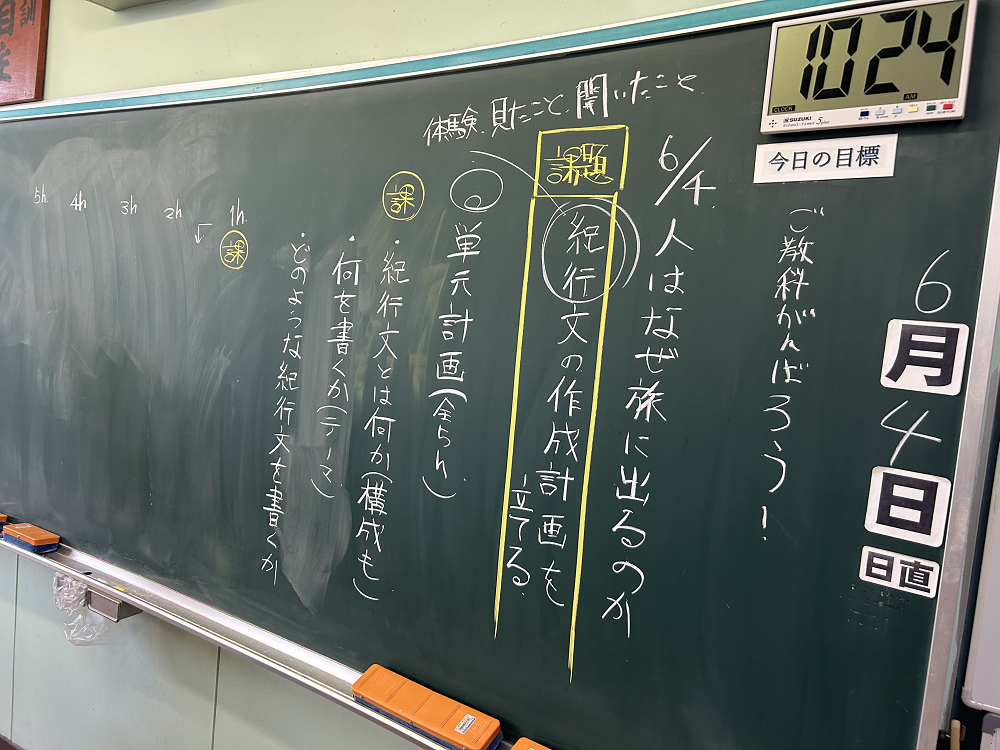 10:24
CLOCK
AM
SUZUKI
今日の目標
ご教科がんばろう！
6月4日
日直
6/4 人はなぜ旅に出るのか
課題
紀行文の作成計画を立てる
体験、見たこと、聞いたこと
単元計画（全らん）
課
・紀行文とは何か（構成も）
・何を書くか（テーマ）
・どのような紀行文を書くか
1h
課
2h
3h
4h
5h